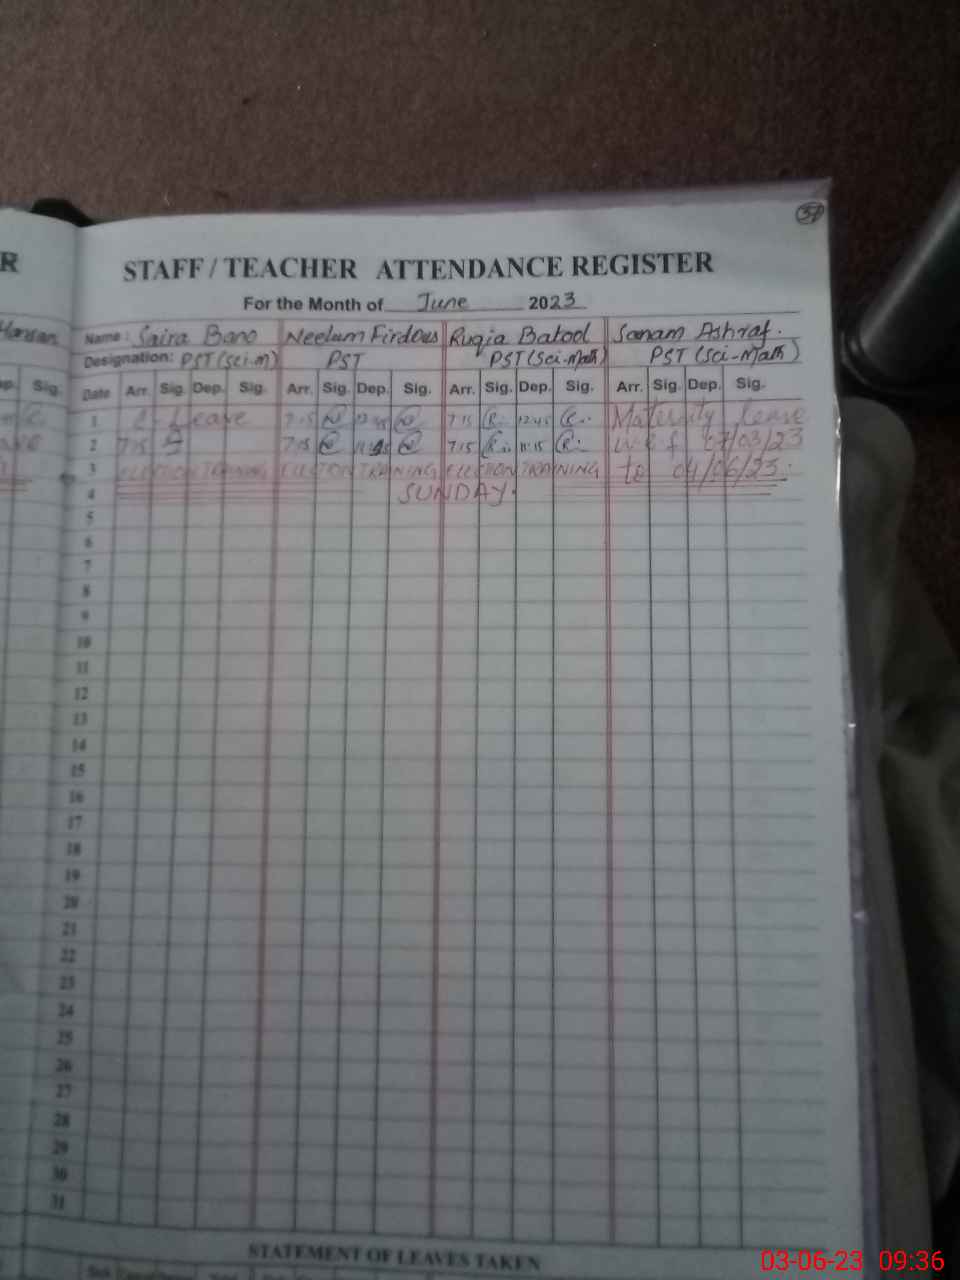 37
R
STAFF / TEACHER ATTENDANCE REGISTER
For the Month of June 2023
Hassan Name : Saira Bano Neelum Firdous Ruqia Batool Sanam Ashraf.
Designation: PST (Sci-m) PST PST (Sci-Math) PST (Sci-Math)
Sig. Date Arr. Sig. Dep. Sig. Arr. Sig. Dep. Sig. Arr. Sig. Dep. Sig. Arr. Sig. Dep. Sig.
1 C-Leave 7:15 12:45 7:15 12:45 Maternity leave
2 7:15 7:15 7:15 11:15 w.e.f 07/03/23
3 ELECTION TRAINING ELECTION TRAINING ELECTION TRAINING to 04/06/23.
4 SUNDAY.
5
6
7
8
9
10
11
12
13
14
15
16
17
18
19
20
21
22
23
24
25
26
27
28
29
30
31
STATEMENT OF LEAVES TAKEN
03-06-23 09:36